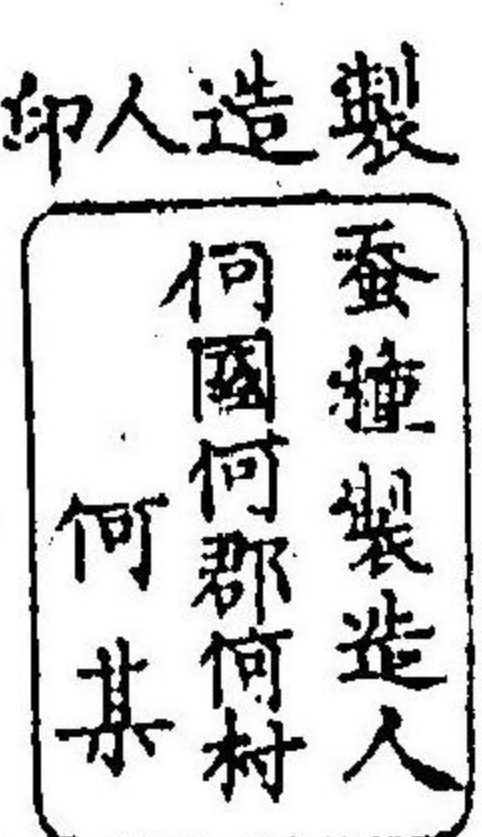 製造人印
蚕種製造人
何國何郡何村
何某